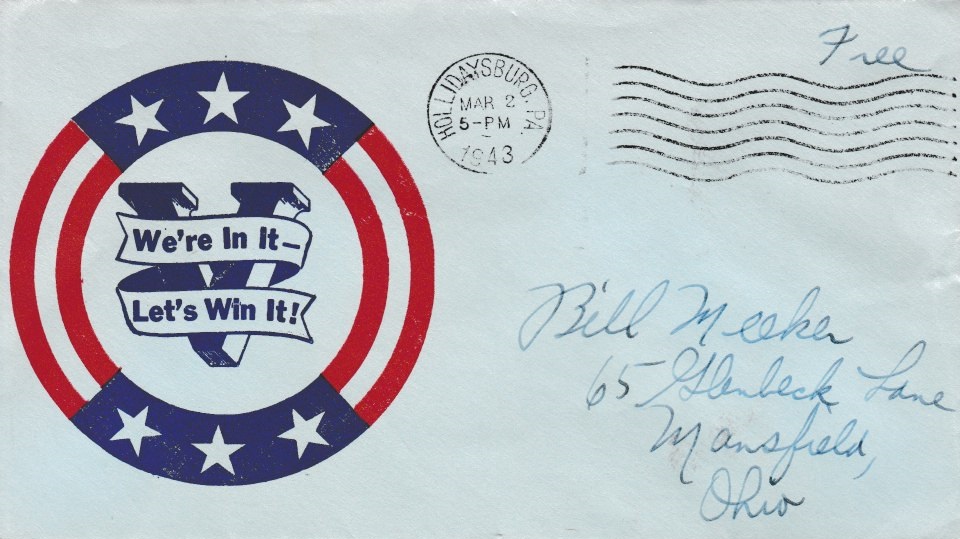 Free
HOLLIDAYSBURG, PA
MAR 2
5-PM
1943
V
We're In It—
Let's Win It!
Bill Meeker
65 Glenbeck Lane
Mansfield,
Ohio